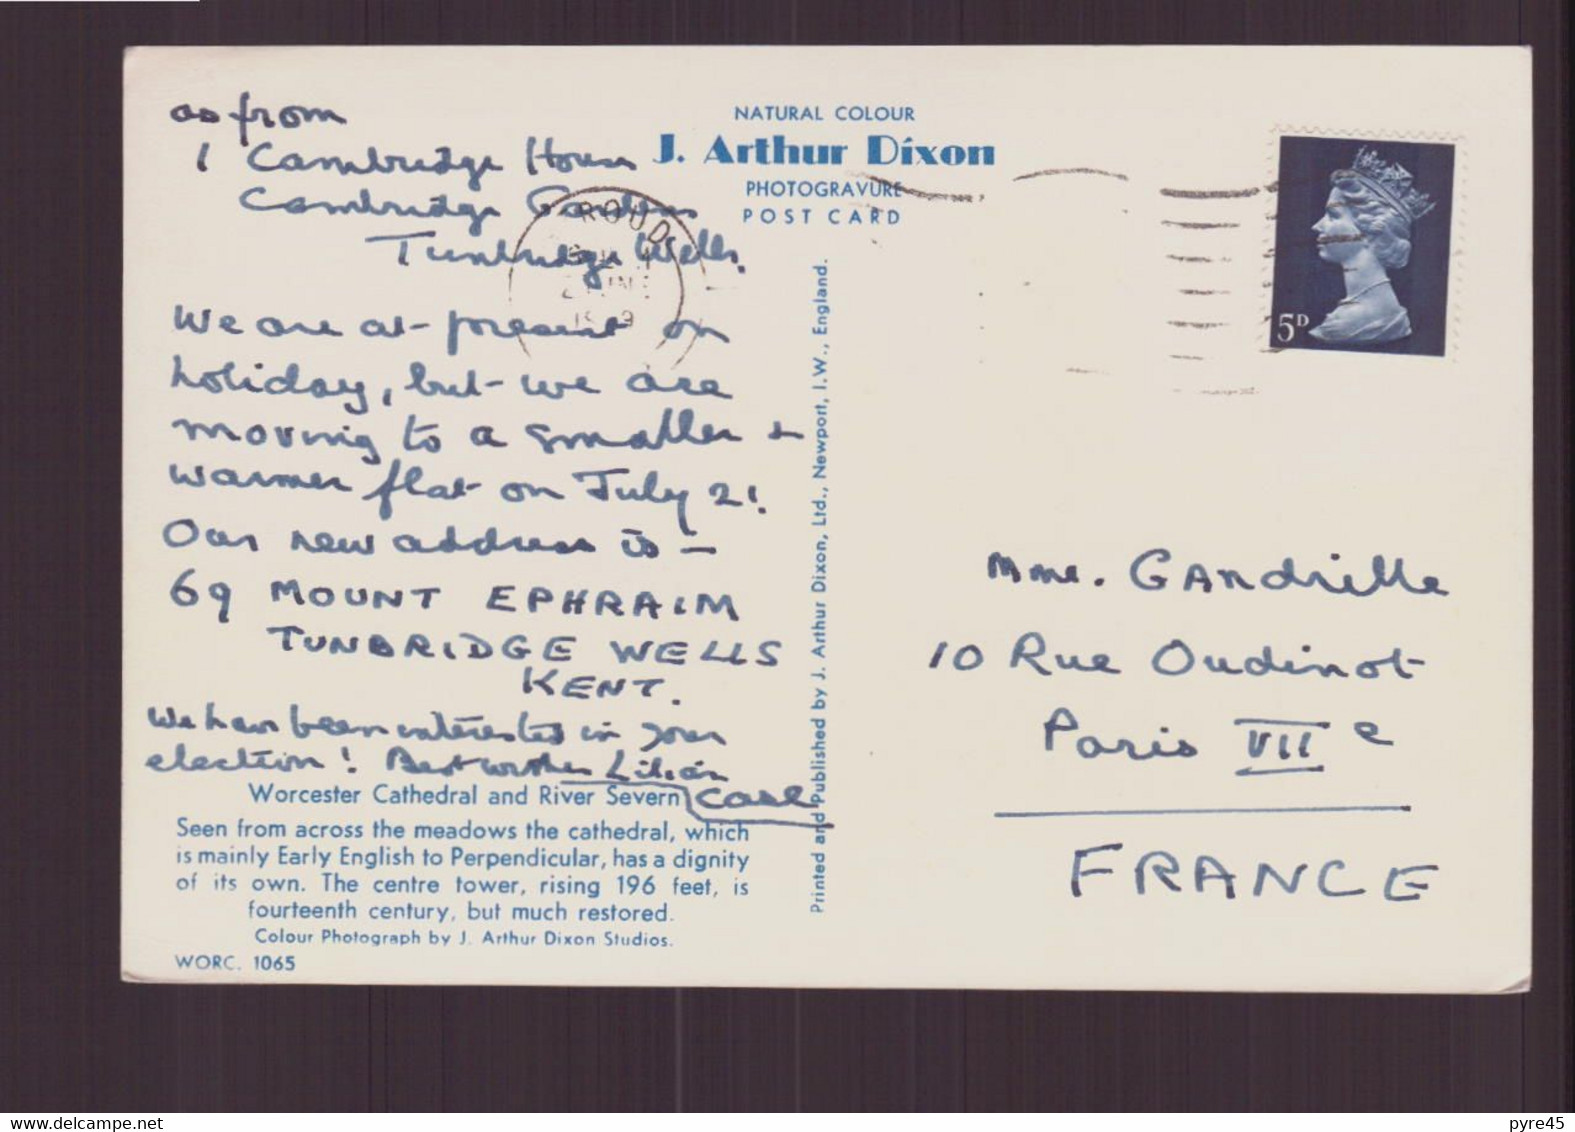 as from
1 Cambridge House
Cambridge Gardens
Tunbridge Wells.
We are at present on
holiday, but we are
moving to a smaller +
warmer flat on July 2!
Our new address is —
69 MOUNT EPHRAIM
TUNBRIDGE WELLS
KENT.
We have been interested in your
election! Best wishes Lilian
Case
Worcester Cathedral and River Severn
Seen from across the meadows the cathedral, which
is mainly Early English to Perpendicular, has a dignity
of its own. The centre tower, rising 196 feet, is
fourteenth century, but much restored.
Colour Photograph by J. Arthur Dixon Studios.
WORC. 1065
NATURAL COLOUR
J. Arthur Dixon
PHOTOGRAVURE
POST CARD
ROUD
Printed and Published by J. Arthur Dixon, Ltd., Newport, I.W., England.
5D
Mme. GANdrille
10 Rue Oudinot
Paris VIIe
FRANCE
www.delcampe.net
pyre45